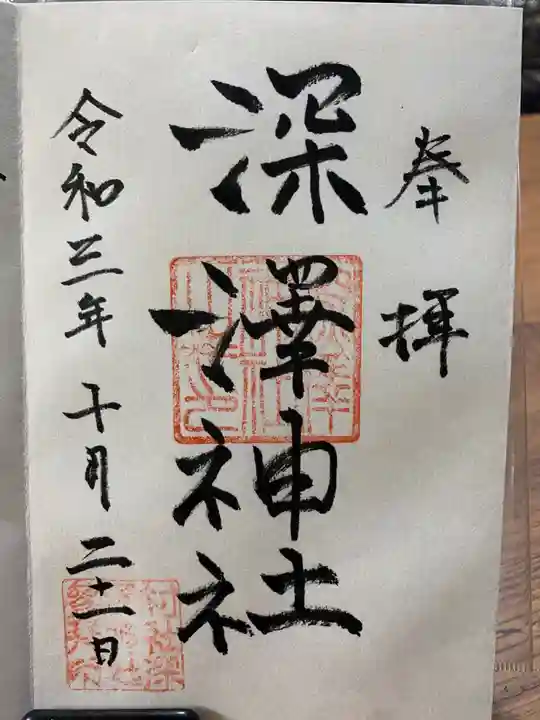 奉拝
深澤神社
令和三年十月二十一日